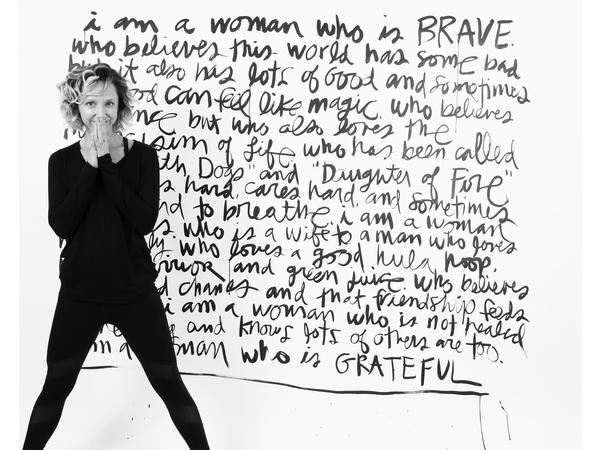 i am a woman who is BRAVE.
who believes this world has some bad
but it also has lots of Good and sometimes
can feel like magic. who believes
but who also loves the
of Life. who has been called
Dogs" and "Daughter of Fire"
hard, cares hard, and sometimes
to breathe. i am a woman
who is a wife to a man who loves
who loves a good hula hoop,
and green juice. who believes
and that friendship feeds
i am a woman who is not healed
and knows lots of others are too.
woman who is GRATEFUL